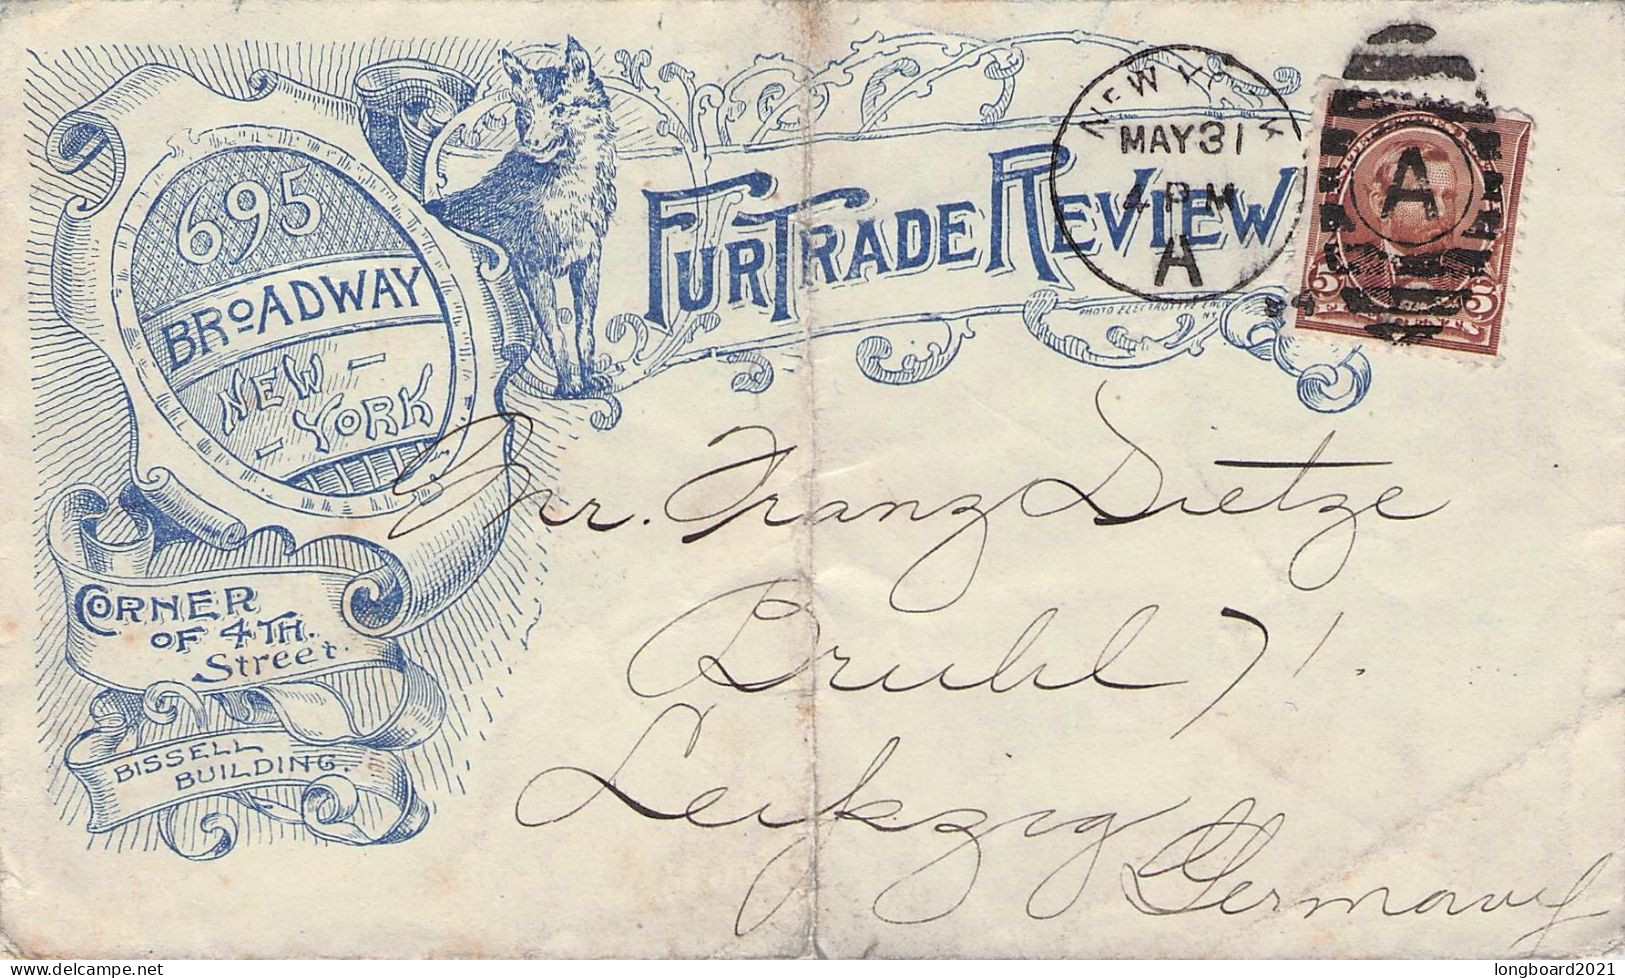 695
BROADWAY
NEW -
- YORK
CORNER
OF 4TH.
Street.
BISSELL
BUILDING.
FUR TRADE REVIEW
PHOTO ELECTROTYPE ENG. CO.
N.Y.
NEW YORK
MAY 31
4 PM
A
94
A
5 5
Mr. Franz Dietze
Bruhl 71.
Leipzig
Germany
www.delcampe.net
longboard2021